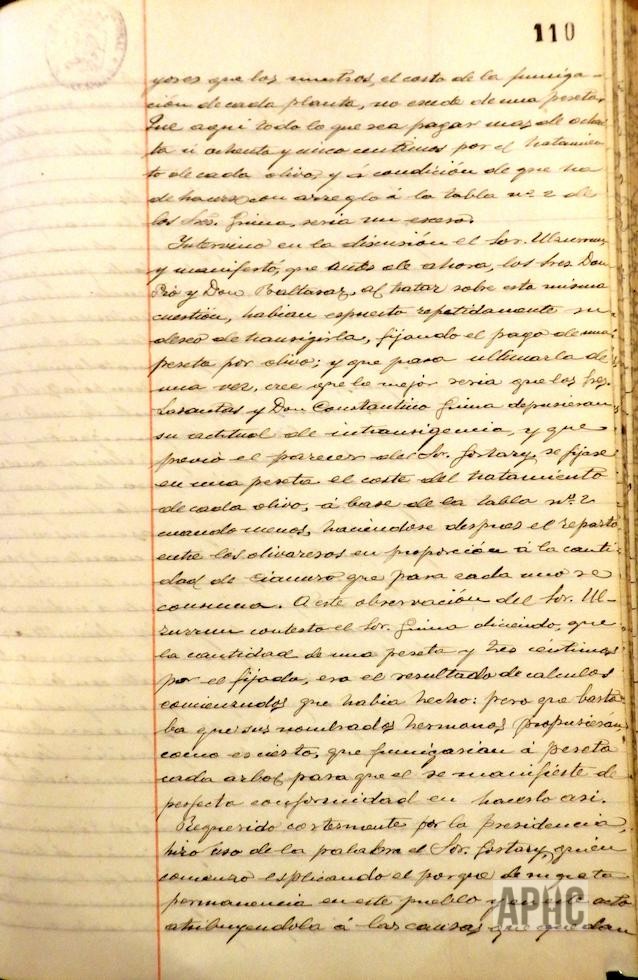 110
yores que los nuestros, el costo de la fumiga-
ción de cada planta, no excede de una peseta.
Que aqui todo lo que sea pagar mas de ochen-
ta ú ochenta y cinco centimos por el tratamien-
to de cada olivo, y á condición de que ha
de hacerse con arreglo á la tabla nº 2 de
los Sres. Gima, seria un exceso.
Intervino en la discusión el Sor. Ulzurrun
y manifestó, que antes de ahora, los Sres. Don
Pio y Don Baltasar, al tratar sobre esta misma
cuestión, habian espuesto repetidamente su
deseo de transigirla, fijando el pago de una
peseta por olivo; y que para ultimarla de
una vez, cree que lo mejor seria que los Sres.
Lasantas y Don Constantino Gima depusieran
su actitud de intransigencia, y que
previo el parecer del Sr. Gortary, se fijase
en una peseta el coste del tratamiento
de cada olivo, á base de la tabla nº 2
cuando menos, haciendose despues el reparto
entre los olivareros en proporción á la canti-
dad de cianuro que para cada uno se
consuma. A este observación del Sor. Ul-
zurrun contesto el Sor. Gima diciendo, que
la cantidad de una peseta y tres céntimos
por el fijada, era el resultado de calculos
concienzudos que habia hecho: pero que basta-
ba que sus nombrados hermanos propusieran,
como es cierto, que fumigarian á peseta
cada arbol para que el se manifieste de
perfecta conformidad en hacerlo asi.
Requerido cortesmente por la Presidencia,
hizo uso de la palabra el Sor. Gortary, quien
comenzó esplicando el porque de su grata
permanencia en este pueblo y en este acto
atribuyendola á las causas que quedan
APHC